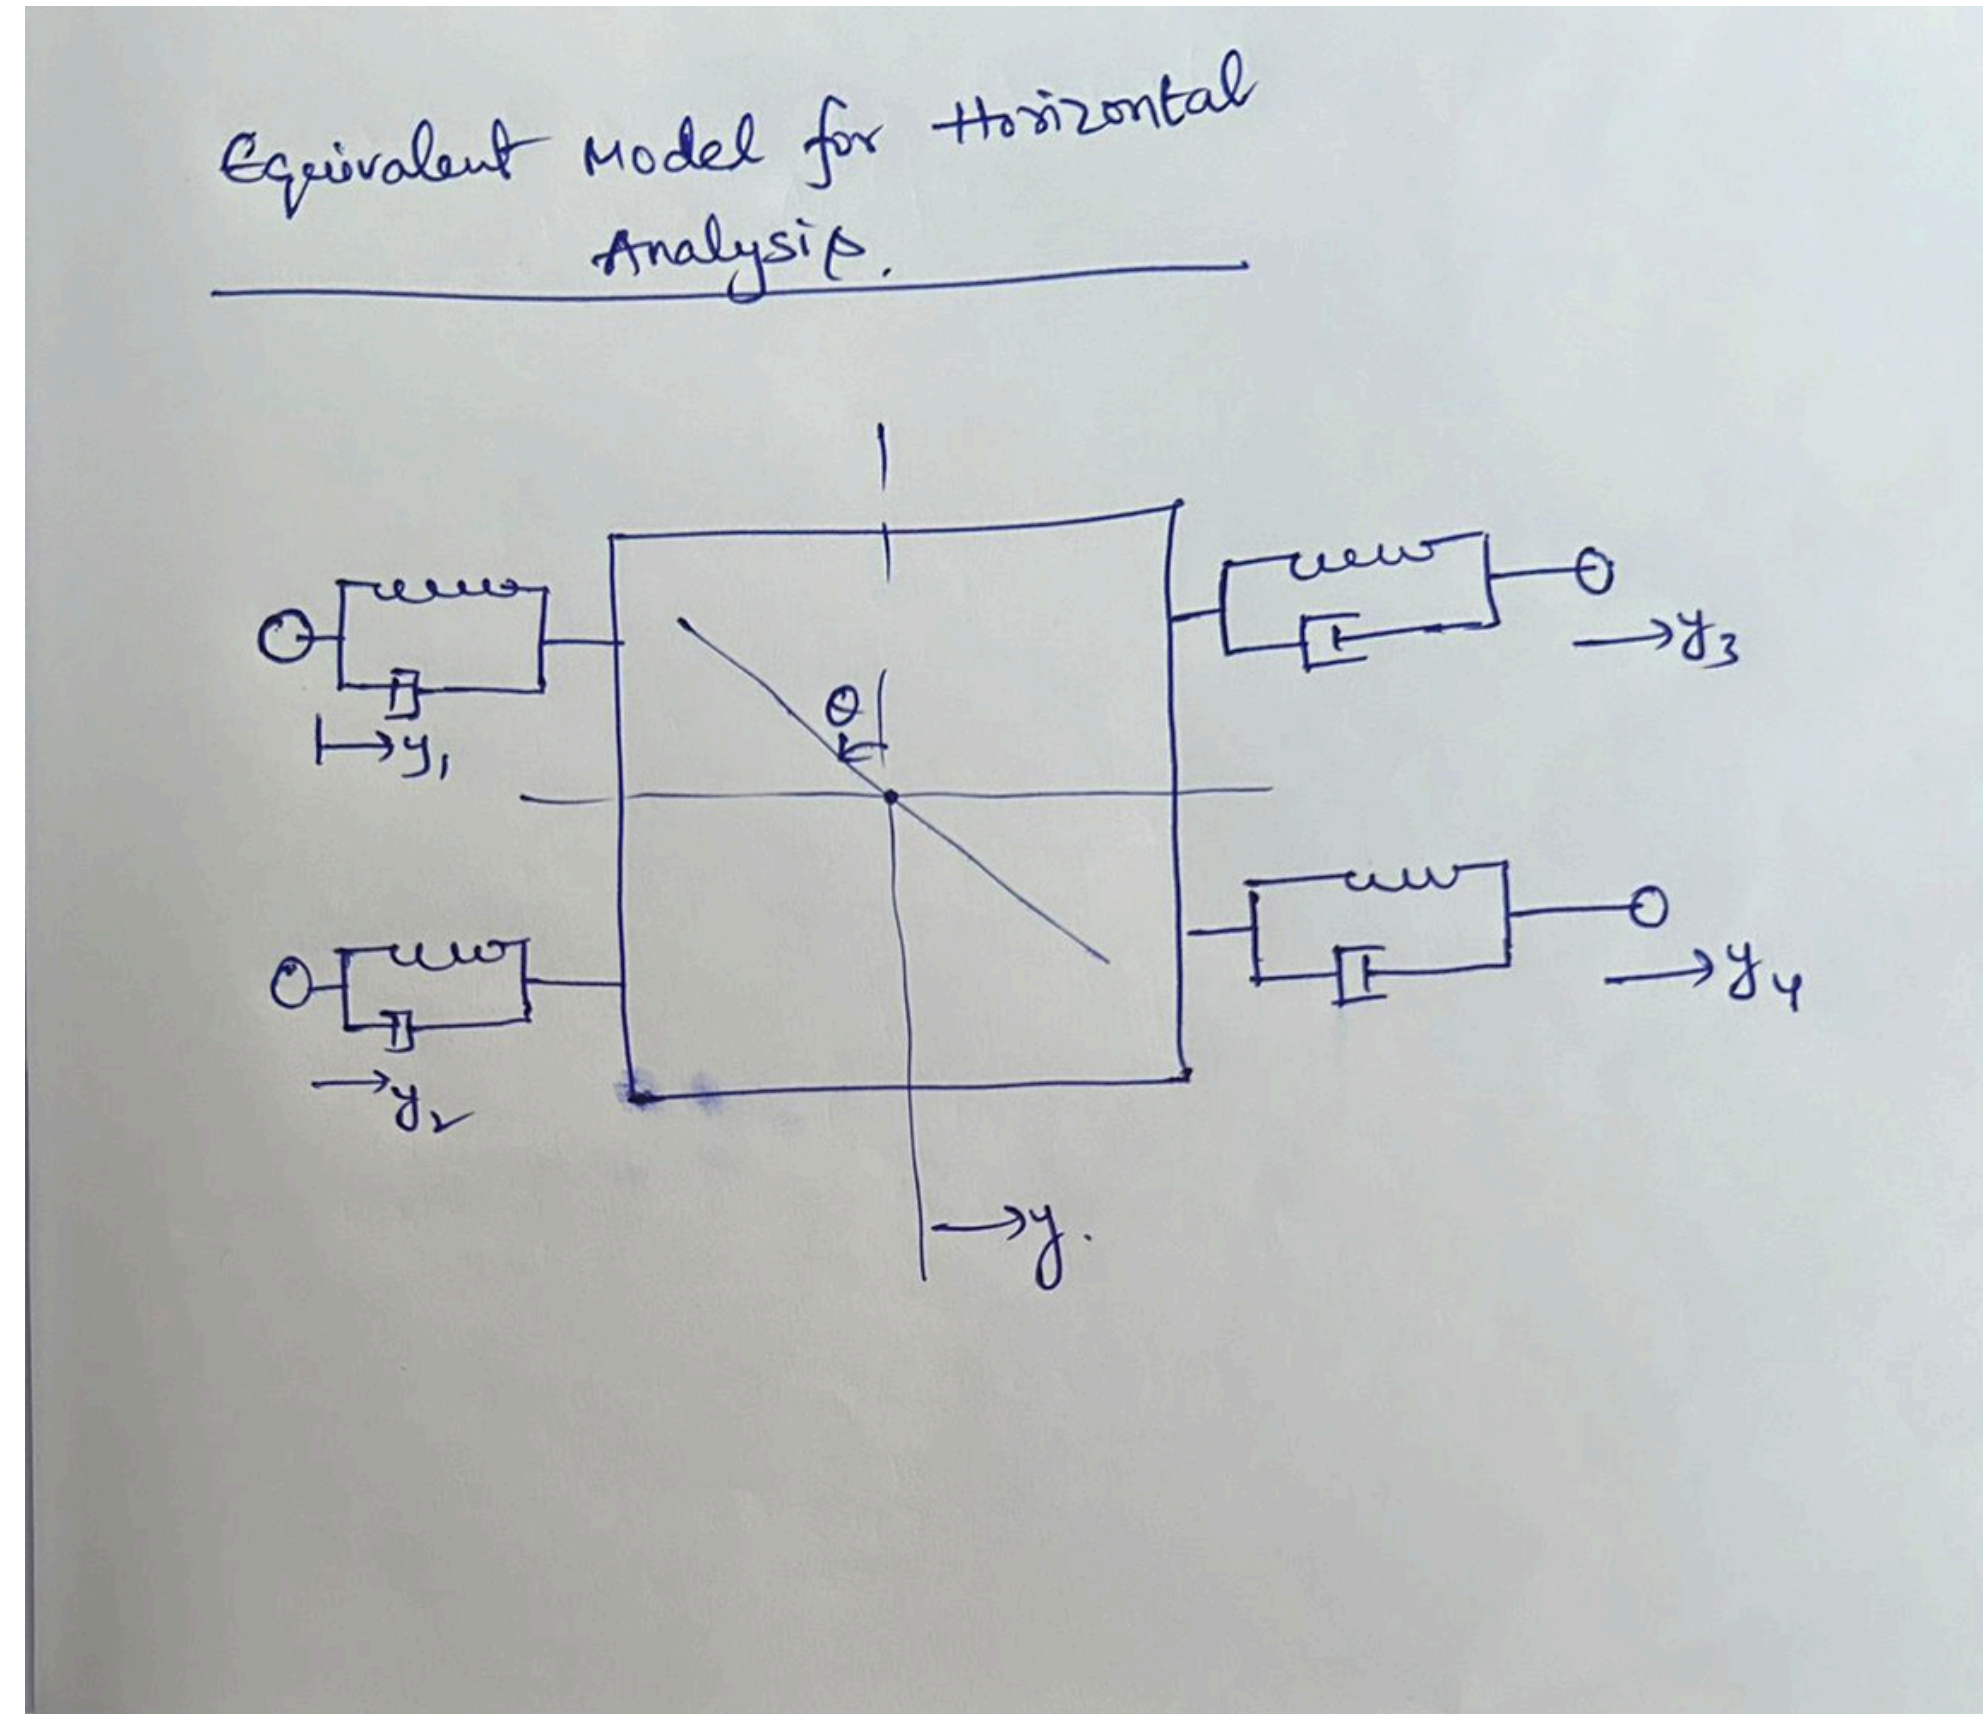 Equivalent Model for Horizontal
Analysis.
θ
y3
y1
y4
y2
y.